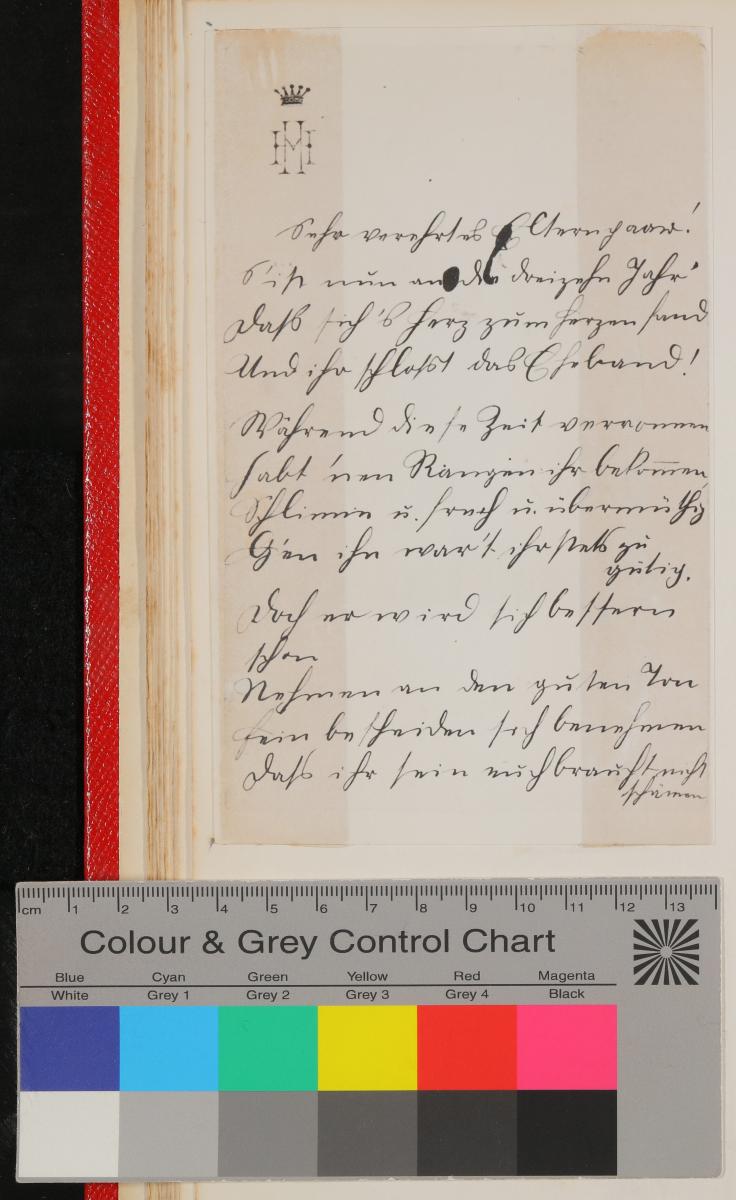 HM
Sehr verehrtes Elternpaar!
S'ist nun an die dreizehn Jahr'
Dass sich's Herz zum Herzen fand
Und ihr schlosst das Eheband!
Während diese Zeit verronnen
habt 'nen Rangen ihr bekom̅en,
Schlimm u. frech u. übermüthig
G'en ihn war't ihr stets zu
gütig.
Doch er wird sich bessern
schon
Nehmen an den guten Ton
fein bescheiden sich benehmen
Dass ihr sein euch braucht nicht
schämen
cm 1 2 3 4 5 6 7 8 9 10 11 12 13
Colour & Grey Control Chart
Blue Cyan Green Yellow Red Magenta
White Grey 1 Grey 2 Grey 3 Grey 4 Black